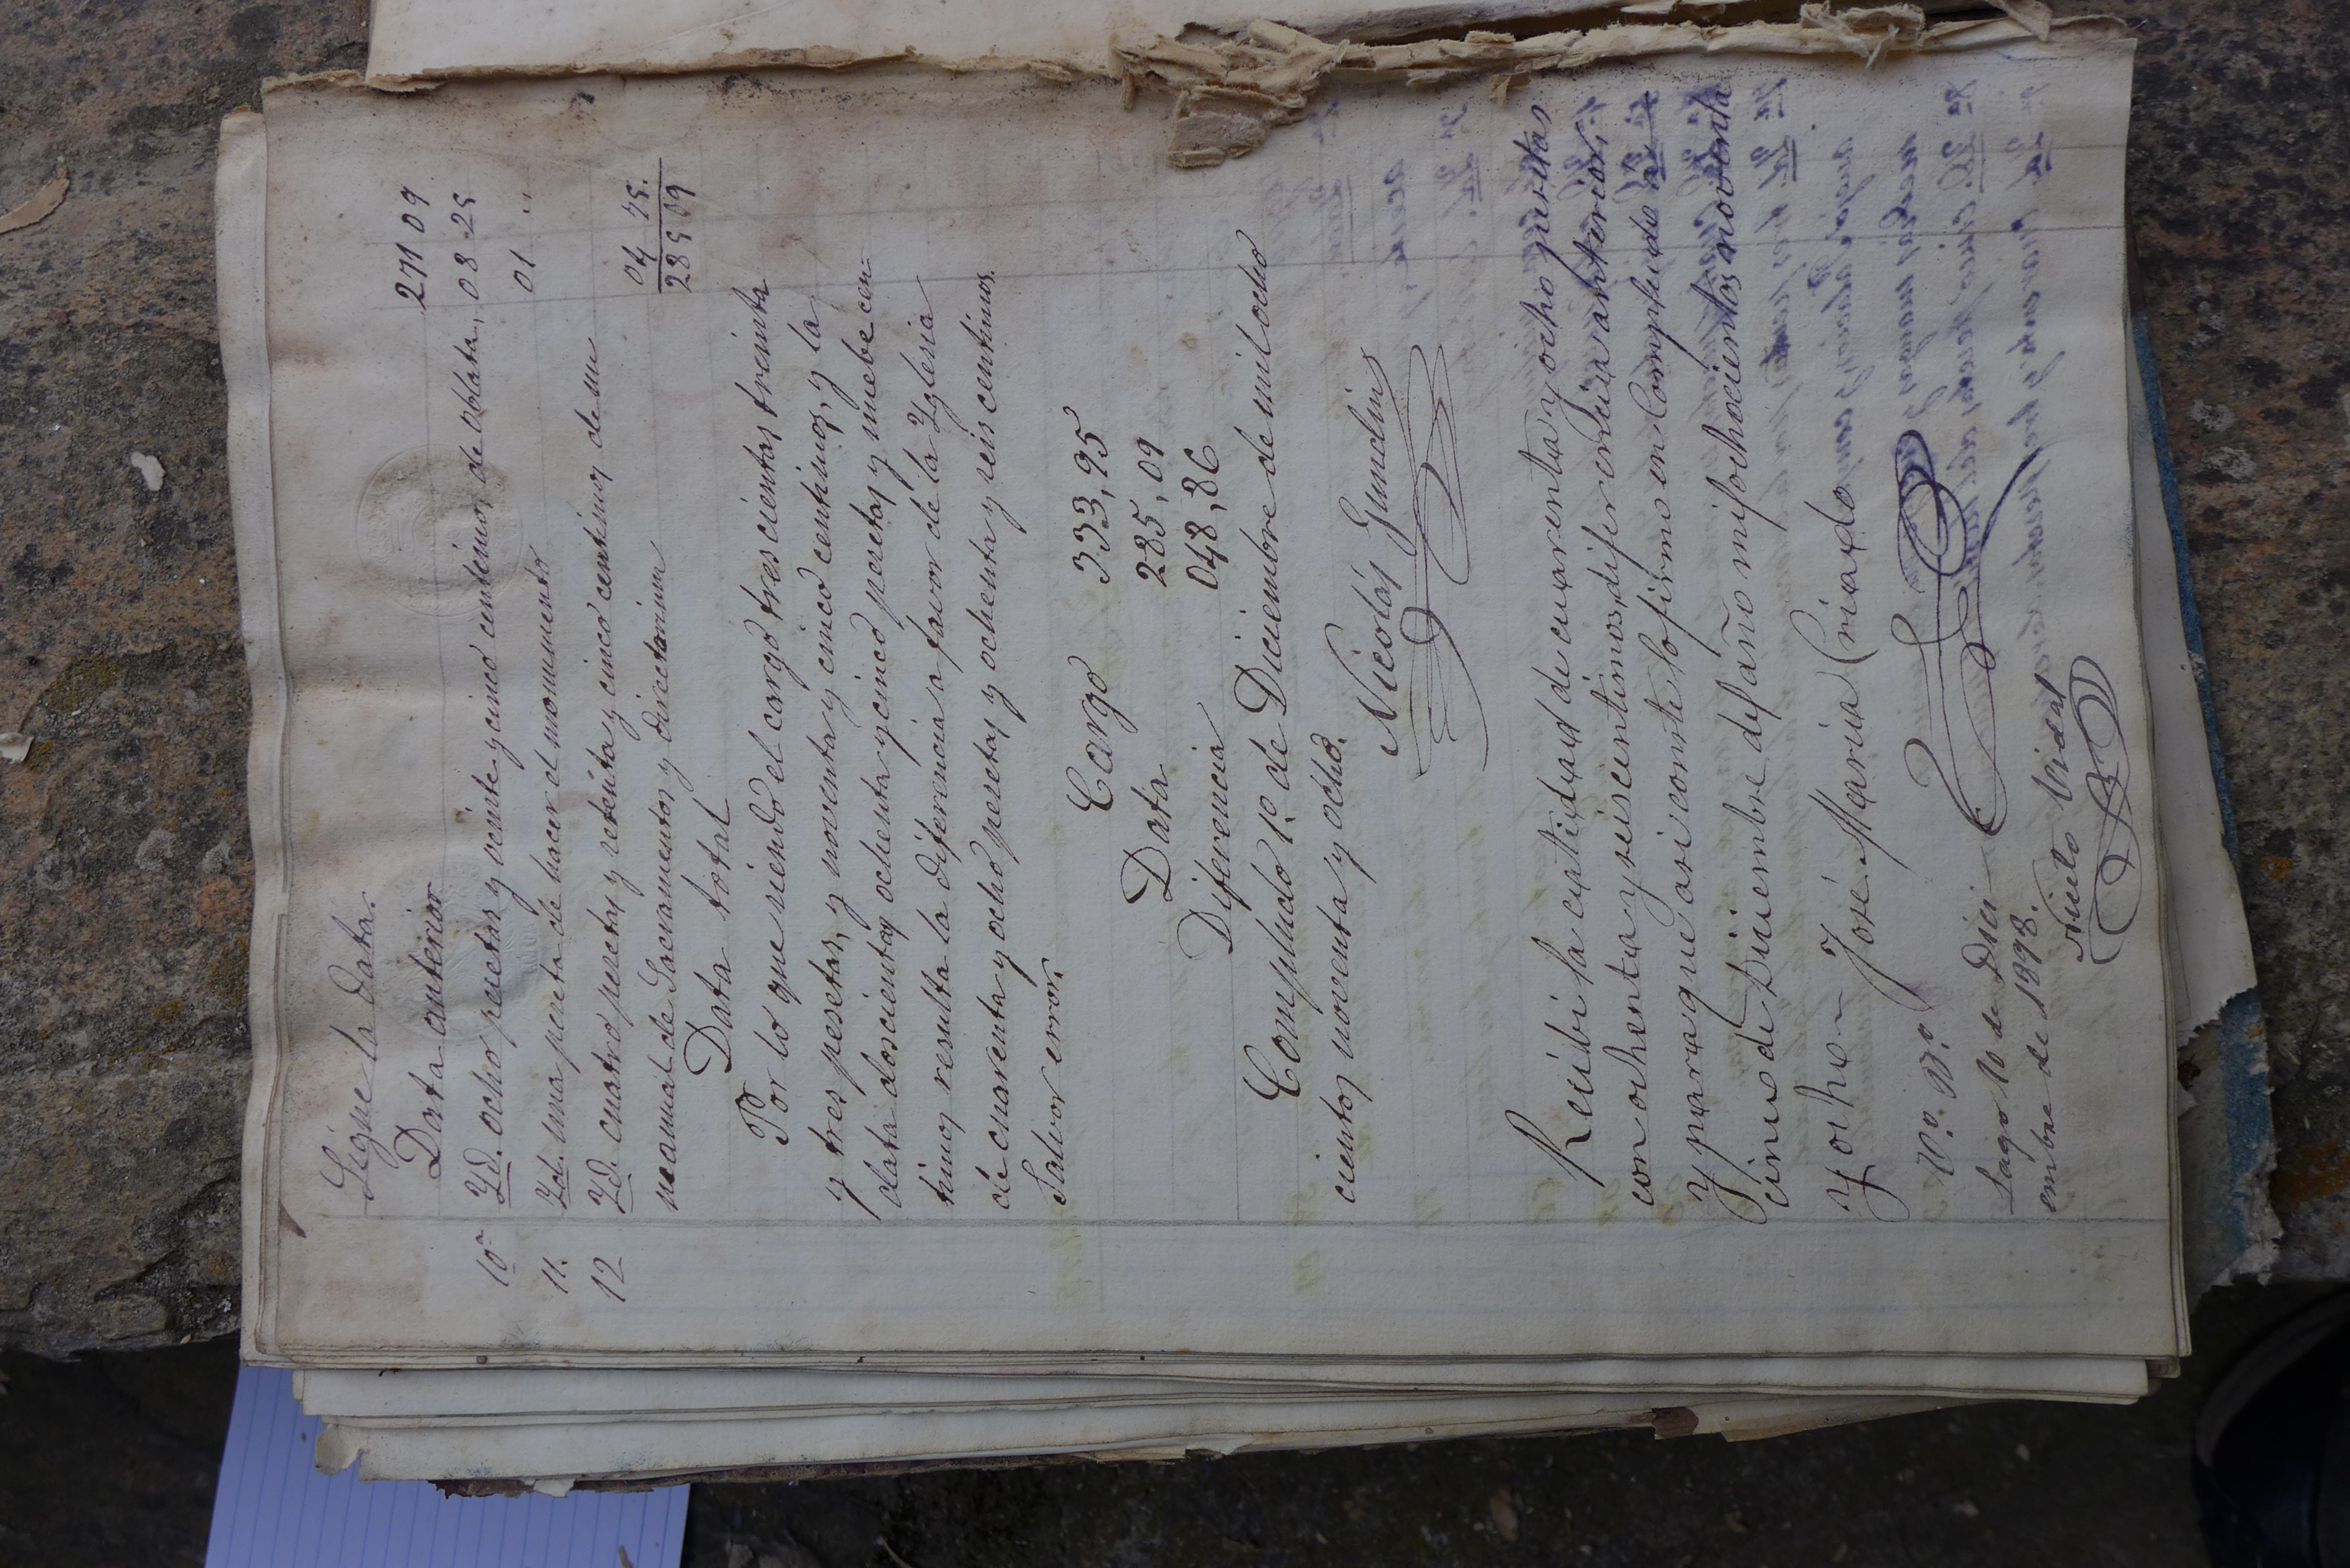 Sigue la Data.
Data anterior 271 09
10ª Yd. ocho pesetas y veinte y cinco centimos de oblata, 08 25
11. Yd. una peseta de hacer el monumento 01 "
12 Yd. cuatro pesetas y setenta y cinco centimos de un
manual de Sacramentos y directorium 04 75.
Data total 285 09
Por lo que siendo el cargo trescientas treinta
y tres pesetas, y noventa y cinco centimos, y la
data doscientas ochenta y cinco pesetas y nuebe cen-
timos resulta la diferencia a favor de la Yglesia
de cuarenta y ocho pesetas y ochenta y seis centimos.
Salvor error.
Cargo 333,95
Data 285,09
Diferencia 048,86
Compludo 1º de Diciembre de mil ocho
cientos noventa y ocho.
Nicolás Gundin
Recibi la cantidad de cuarenta y ocho pesetas
con ochenta y seis centimos, diferencia anterior,
y para que asi conste lo firmo en Compludo
cinco de Diciembre del año mil ochocientos noventa
y ocho ~ José Maria Criado
Vº Bº
Lago 10 de Dici-
embre de 1898.
Niceto Vidal